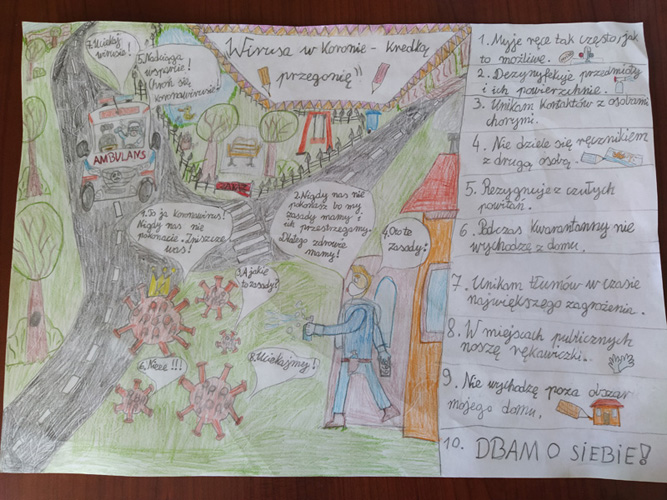 Wirusa w Koronie - Kredką
przegonię"
7.Uciekaj
wirusie!
5.Nadciąga
wsparcie!
Chroń się
koronawirusie!
AMBULANS
1.To ja koronawirus!
Nigdy nas nie
pokonacie. Zniszczę
was!
2.Nigdy nas nie
pokonasz bo my
zasady mamy i
ich przestrzegamy.
Dlatego zdrowie
mamy!
3.A jakie
to zasady?
4.Oto te
zasady:
6.Nieee!!!
8.Uciekajmy!
1. Myje ręce tak często jak
to możliwe.
2. Dezynfekuje przedmioty
i ich powierzchnie.
3. Unikam kontaktów z osobami
chorymi.
4. Nie dziele się ręcznikiem
z drugą osobą.
5. Rezygnuje z czułych
powitań.
6. Podczas kwarantanny nie
wychodzę z domu.
7. Unikam tłumów w czasie
największego zagrożenia.
8. W miejscach publicznych
noszę rękawiczki.
9. Nie wychodzę poza obszar
mojego domu.
10. DBAM O SIEBIE!